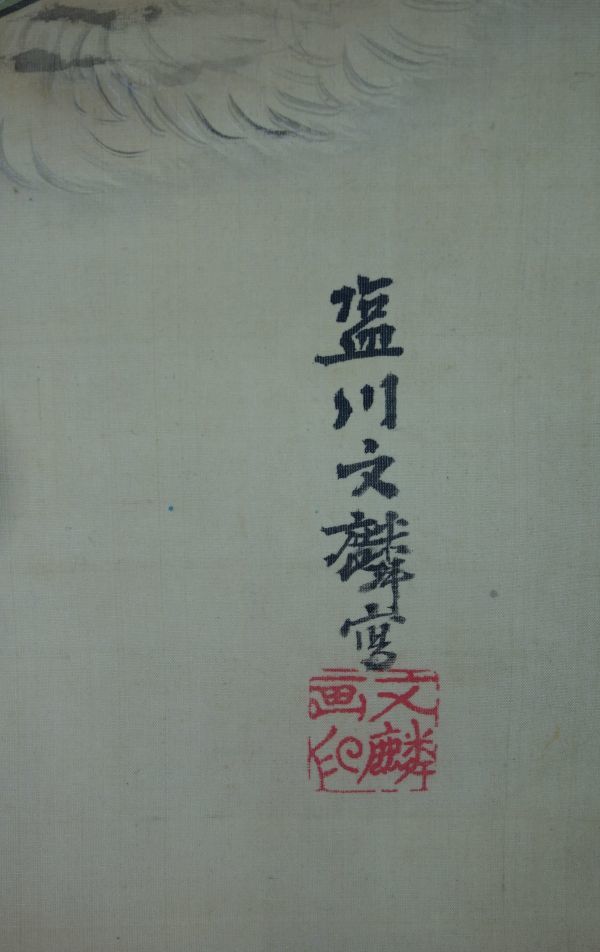 塩川文麟寫
文麟
画印